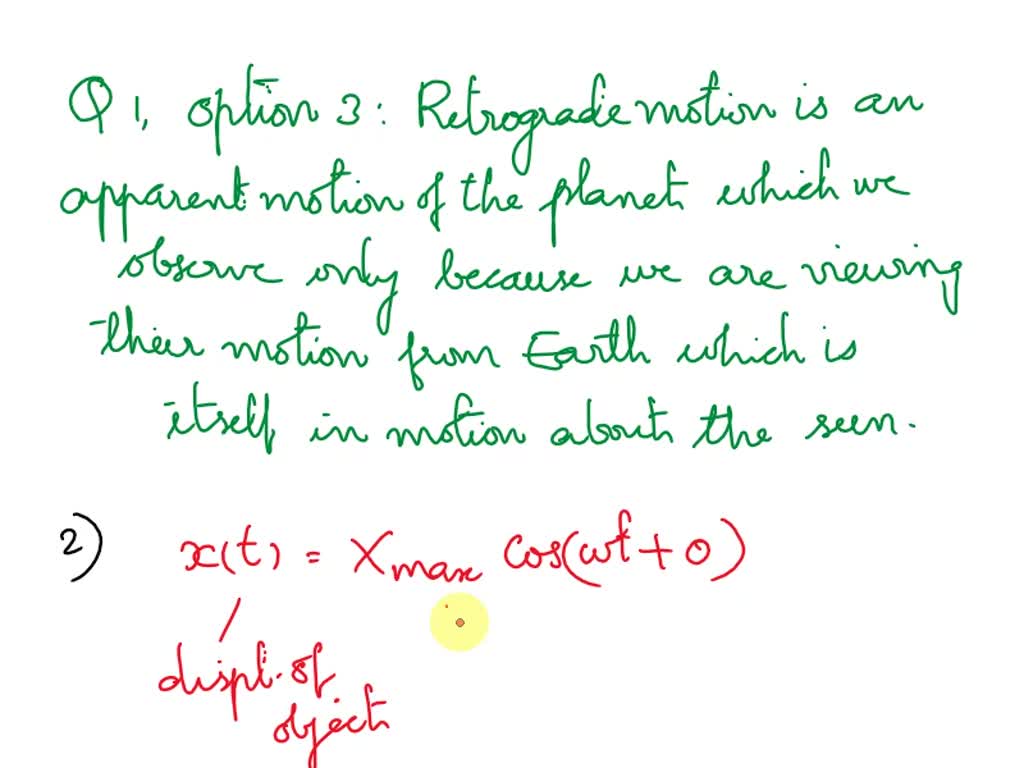 Q 1, option 3: Retrograde motion is an
apparent motion of the planet which we
observe only because we are viewing
their motion from Earth which is
itself in motion about the seen.
2) x(t) = Xmax cos(ωt + 0)
displ. of
object